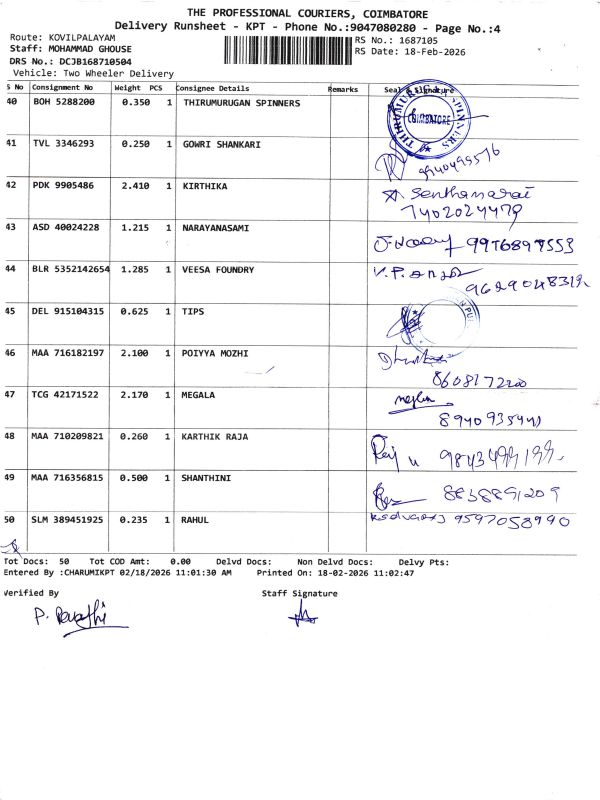 THE PROFESSIONAL COURIERS, COIMBATORE
Delivery Runsheet - KPT - Phone No.:9047080280 - Page No.:4
Route: KOVILPALAYAM
RS No.: 1687105
Staff: MOHAMMAD GHOUSE
RS Date: 18-Feb-2026
DRS No.: DCJB168710504
Vehicle: Two Wheeler Delivery
S No Consignment No Weight PCS Consignee Details Remarks Seal & Signature
40 BOH 5288200 0.350 1 THIRUMURUGAN SPINNERS
COIMBATORE
41 TVL 3346293 0.250 1 GOWRI SHANKARI
9940495576
42 PDK 9905486 2.410 1 KIRTHIKA
7402024479
43 ASD 40024228 1.215 1 NARAYANASAMI
44 BLR 5352142654 1.285 1 VEESA FOUNDRY
V.P.
45 DEL 915104315 0.625 1 TIPS
46 MAA 716182197 2.100 1 POIYYA MOZHI
8608172200
47 TCG 42171522 2.170 1 MEGALA
48 MAA 710209821 0.260 1 KARTHIK RAJA
49 MAA 716356815 0.500 1 SHANTHINI
8838891209
50 SLM 389451925 0.235 1 RAHUL
9597058990
Tot Docs: 50 Tot COD Amt: 0.00 Delvd Docs: Non Delvd Docs: Delvy Pts:
Entered By :CHARUMIKPT 02/18/2026 11:01:30 AM Printed On: 18-02-2026 11:02:47
Verified By Staff Signature
P. Revathi